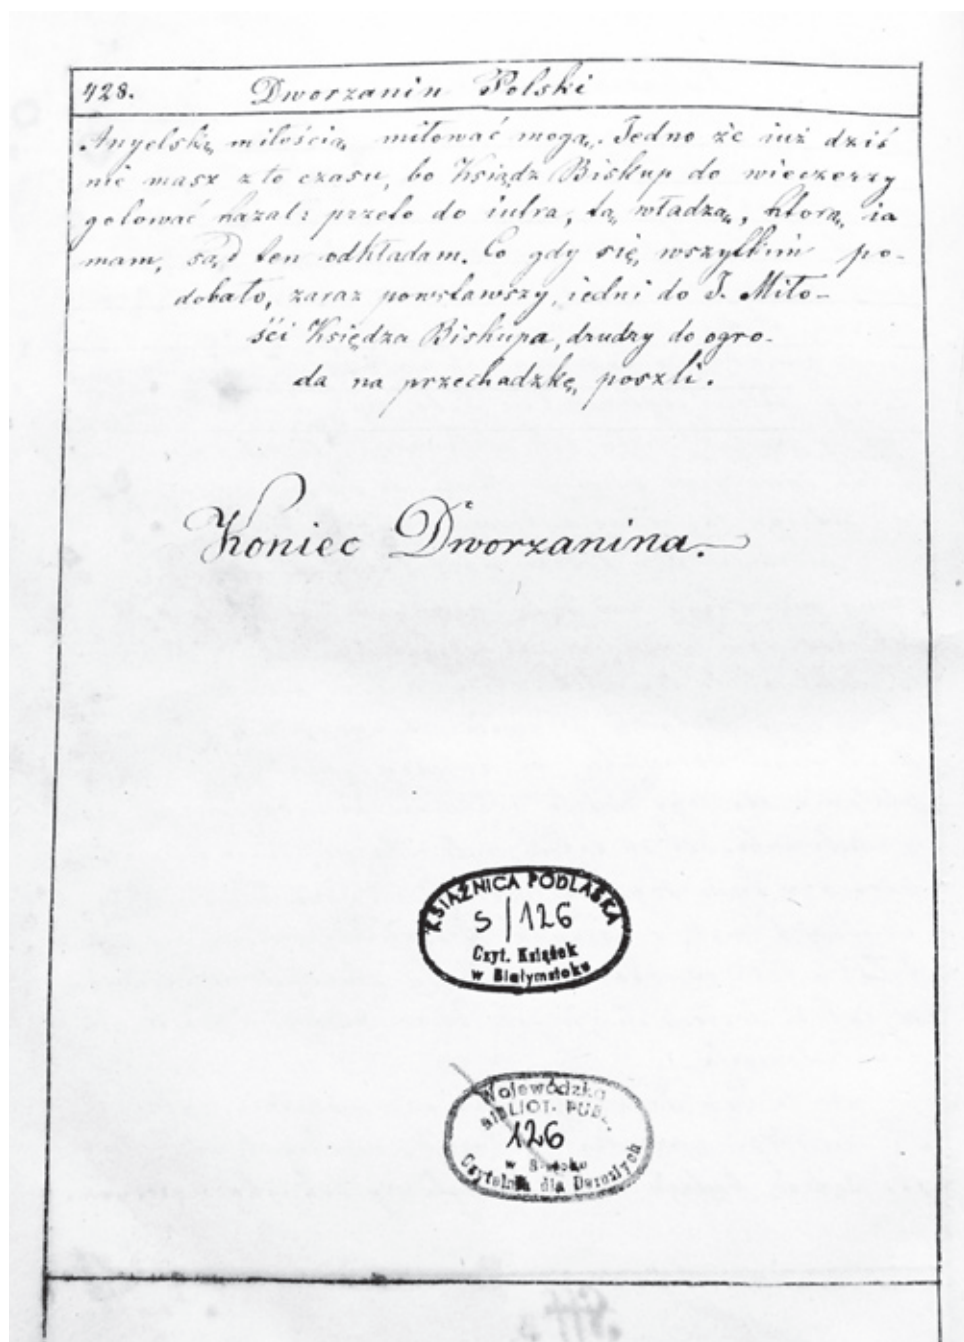 428. Dworzanin Polski
Anyelską miłością miłować mogą. Jedno że iuż dziś
nie masz z to czasu, bo Ksiądz Biskup do wieczerzy
gotować kazał: przeto do iutra, tą władzą, którą ia
mam, sąd ten odkładam. Co gdy się wszytkim po-
dobało, zaraz powstawszy, iedni do J. Miło-
ści Księdza Biskupa, drudzy do ogro-
da na przechadzkę poszli.
Koniec Dworzanina.
KSIĄŻNICA PODLASKA
S/126
Czyt. Książek
w Białymstoku
Wojewódzka
BIBLIOT. PUB.
126
w B-stoku
Czytelnia dla Dorosłych